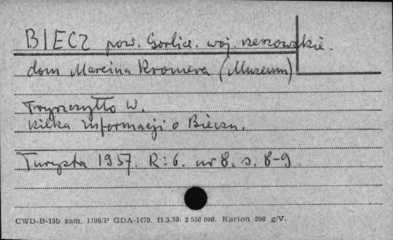 BIECZ pow. Gorlice. woj. rzeszowskie.
dom Marcina Kromera (Muzeum)
Fryszczyłło W.
Kilka informacji o Bieczu.
Turysta 1957. R: 6. nr 8. s. 8-9
CWD-B-15b zam. 1106/P GDA-1479. 11.5.59. 2 550 000. Karton 200 g/V.